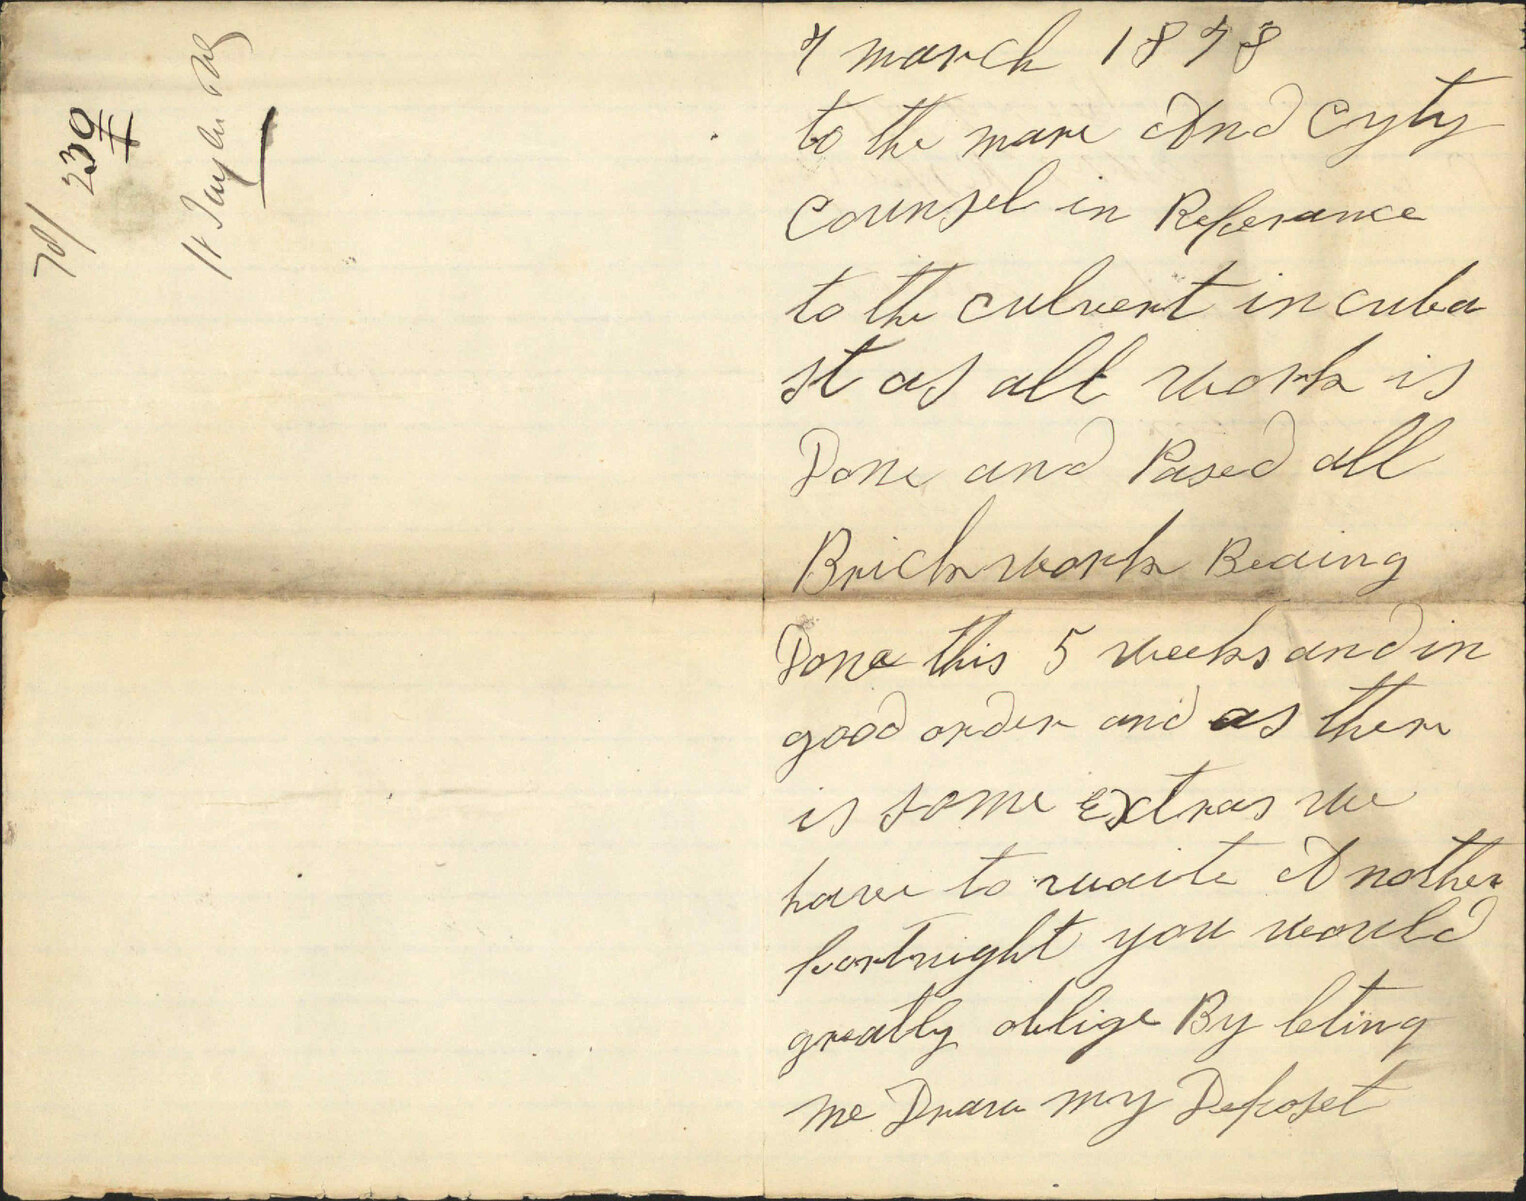 7 march 1878
to the mare And Cyty
Counsel in Referance
to the culvert in cuba
st as all work is
Done and Pased all
Brick work Beaing
Done this 5 weeks and in
good order and as ther
is some Extras we
have to waite Another
fortnight you would
greatly oblige By leting
me Draw my Deposet
78/
230
W Taylor